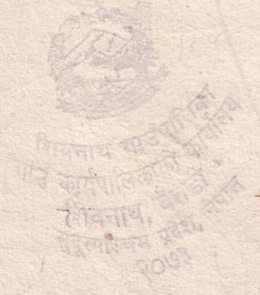 शिवनाथ गाउँपालिका
गाउँ कार्यपालिकाको कार्यालय
शिवनाथ, बैतडी
सुदूरपश्चिम प्रदेश, नेपाल
२०७३